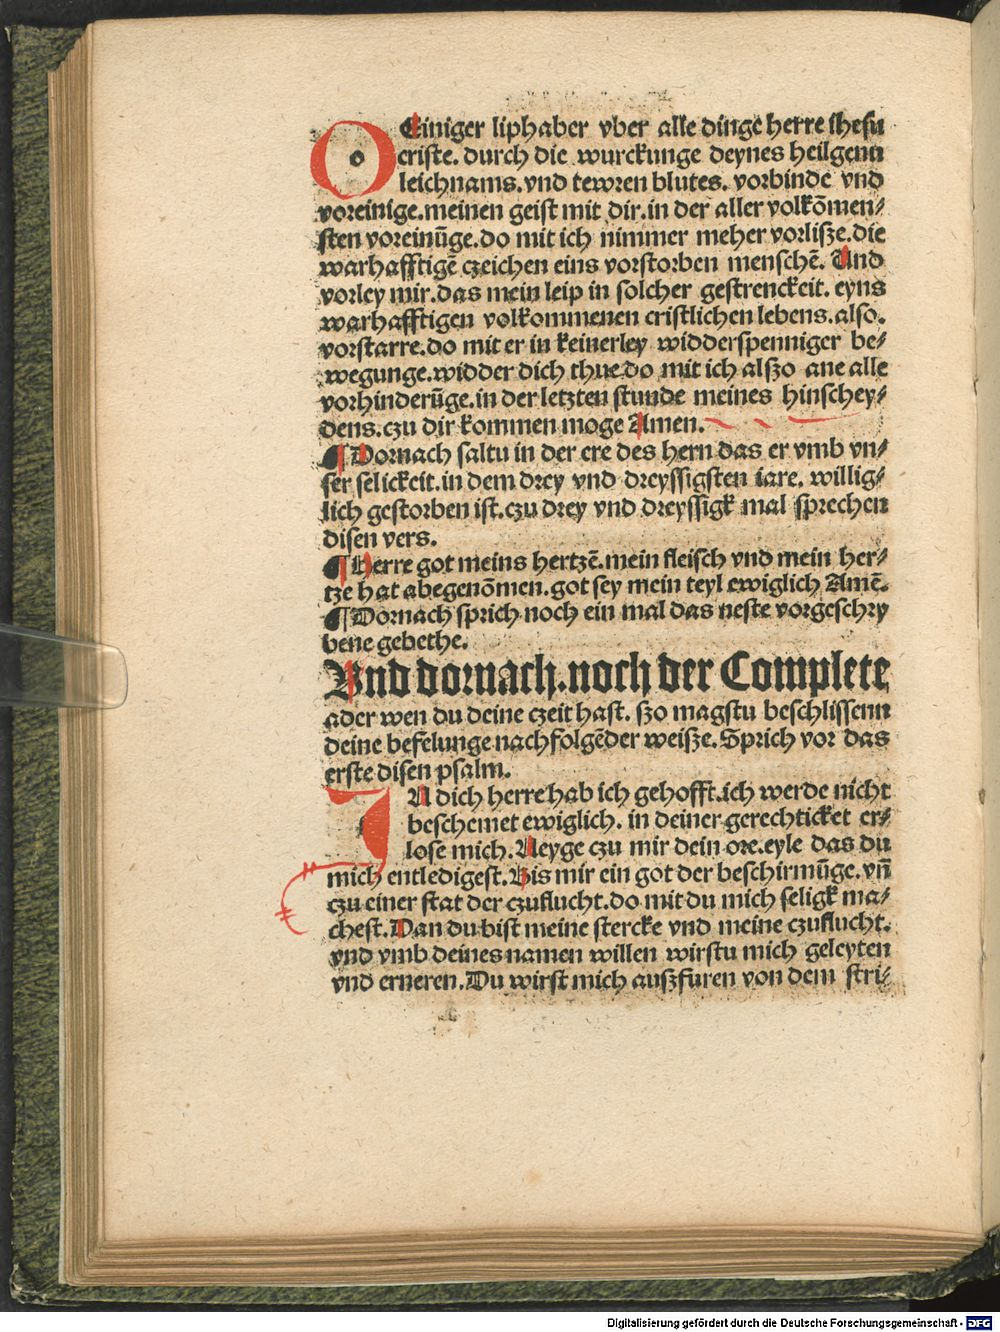 O Einiger liphaber vber alle dinge herre ihesu
criste. durch die wurckunge deynes heilgenn
leichnams. vnd tewren blutes. vorbinde vnd
voreinige. meinen geist mit dir. in der aller volkōmen⸗
sten voreinūge. do mit ich nimmer meher vorlisze. die
warhafftigē czeichen eins vorstorben menschē. Und
vorley mir. das mein leip in solcher gestrenckeit. eyns
warhafftigen volkommenen cristlichen lebens. also.
vorstarre. do mit er in keinerley widderspenniger be⸗
wegunge. widder dich thue. do mit ich alszo ane alle
vorhinderūge. in der letzten stunde meines hinschey⸗
dens. czu dir kommen moge Amen.
¶ Dornach saltu in der ere des hern das er vmb vn⸗
ser selickeit. in dem drey vnd dreyssigsten iare. willig⸗
lich gestorben ist. czu drey vnd dreyssigk mal sprechen
disen vers.
¶ Herre got meins hertzē. mein fleisch vnd mein her⸗
tze hat abegenōmen. got sey mein teyl ewiglich Amē.
¶ Dornach sprich noch ein mal das neste vorgeschry
bene gebethe.
Vnd dornach. noch der Complete
ader wen du deine czeit hast. szo magstu beschlissenn
deine befelunge nachfolgēder weisze. Sprich vor das
erste disen psalm.
IN dich herre hab ich gehofft. ich werde nicht
beschemet ewiglich. in deiner gerechticket er⸗
lose mich. Neyge czu mir dein ore. eyle das du
mich entledigest. Bis mir ein got der beschirmūge. vn̄
czu einer stat der czuflucht. do mit du mich seligk ma⸗
chest. Dan du bist meine stercke vnd meine czuflucht.
vnd vmb deines namen willen wirstu mich geleyten
vnd erneren. Du wirst mich auszfuren von dem stri⸗
Digitalisierung gefördert durch die Deutsche Forschungsgemeinschaft - DFG